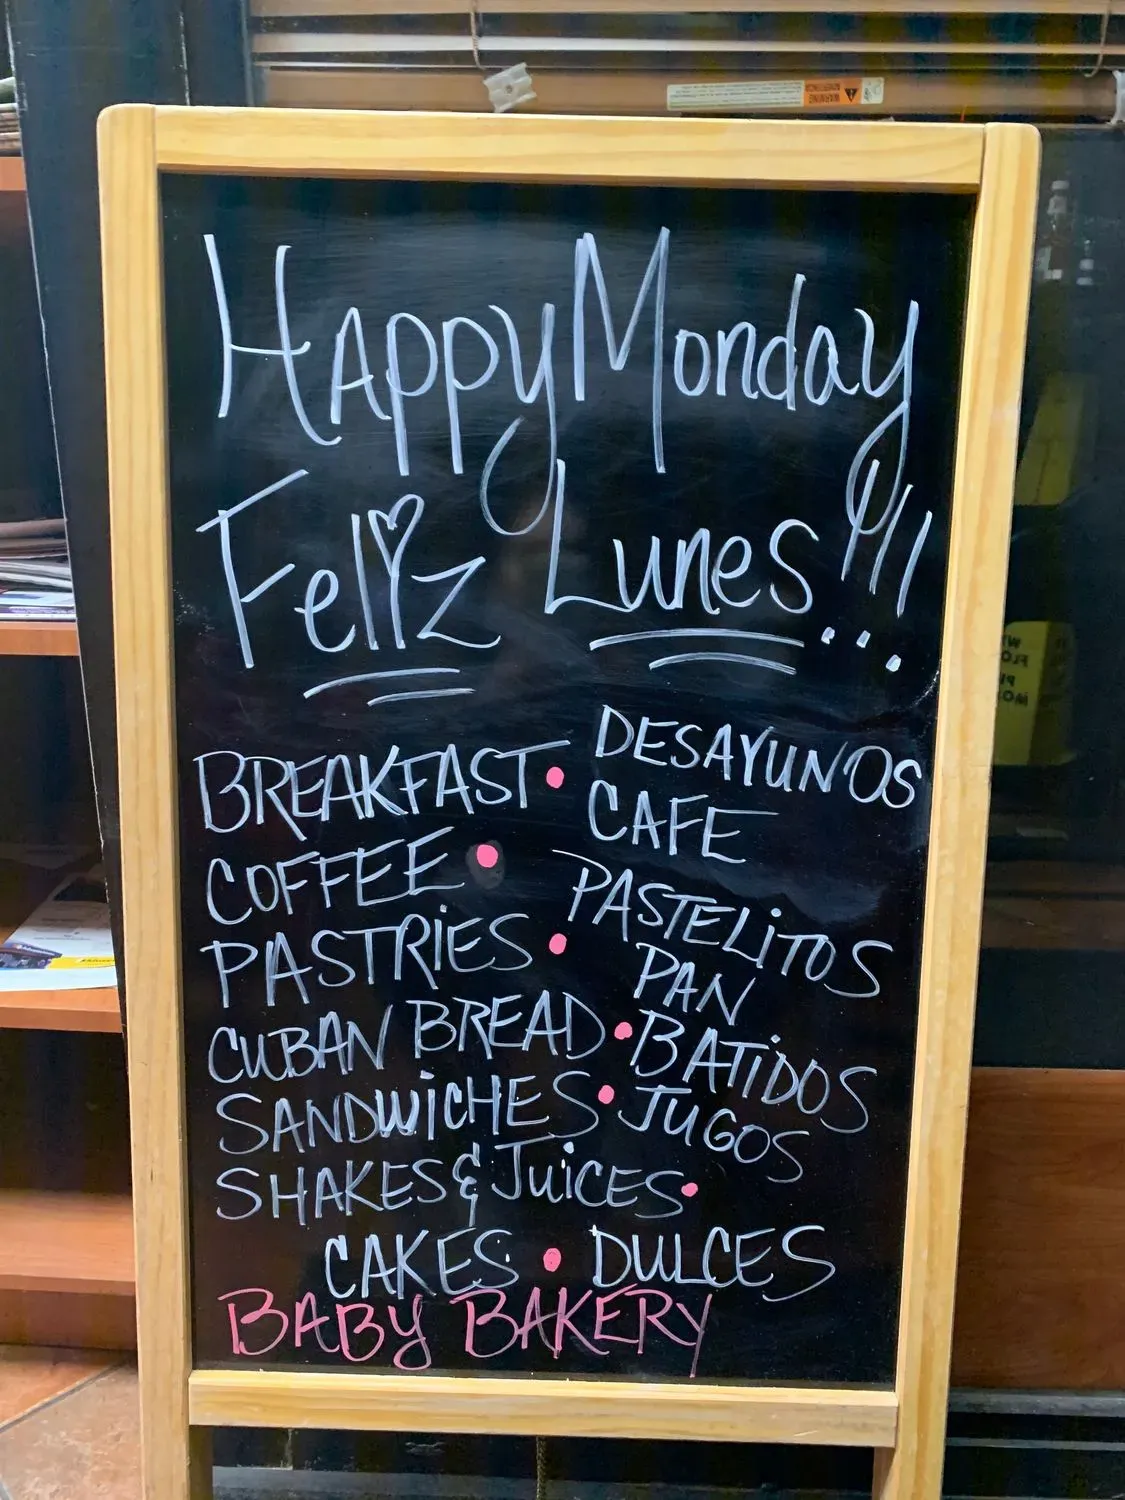 Happy Monday
Feliz Lunes!!!
BREAKFAST • DESAYUNOS
COFFEE • CAFE
PASTRIES • PASTELITOS
CUBAN BREAD • PAN
SANDWICHES • BATIDOS
SHAKES & JUICES • JUGOS
CAKES • DULCES
BABY BAKERY
WARNING